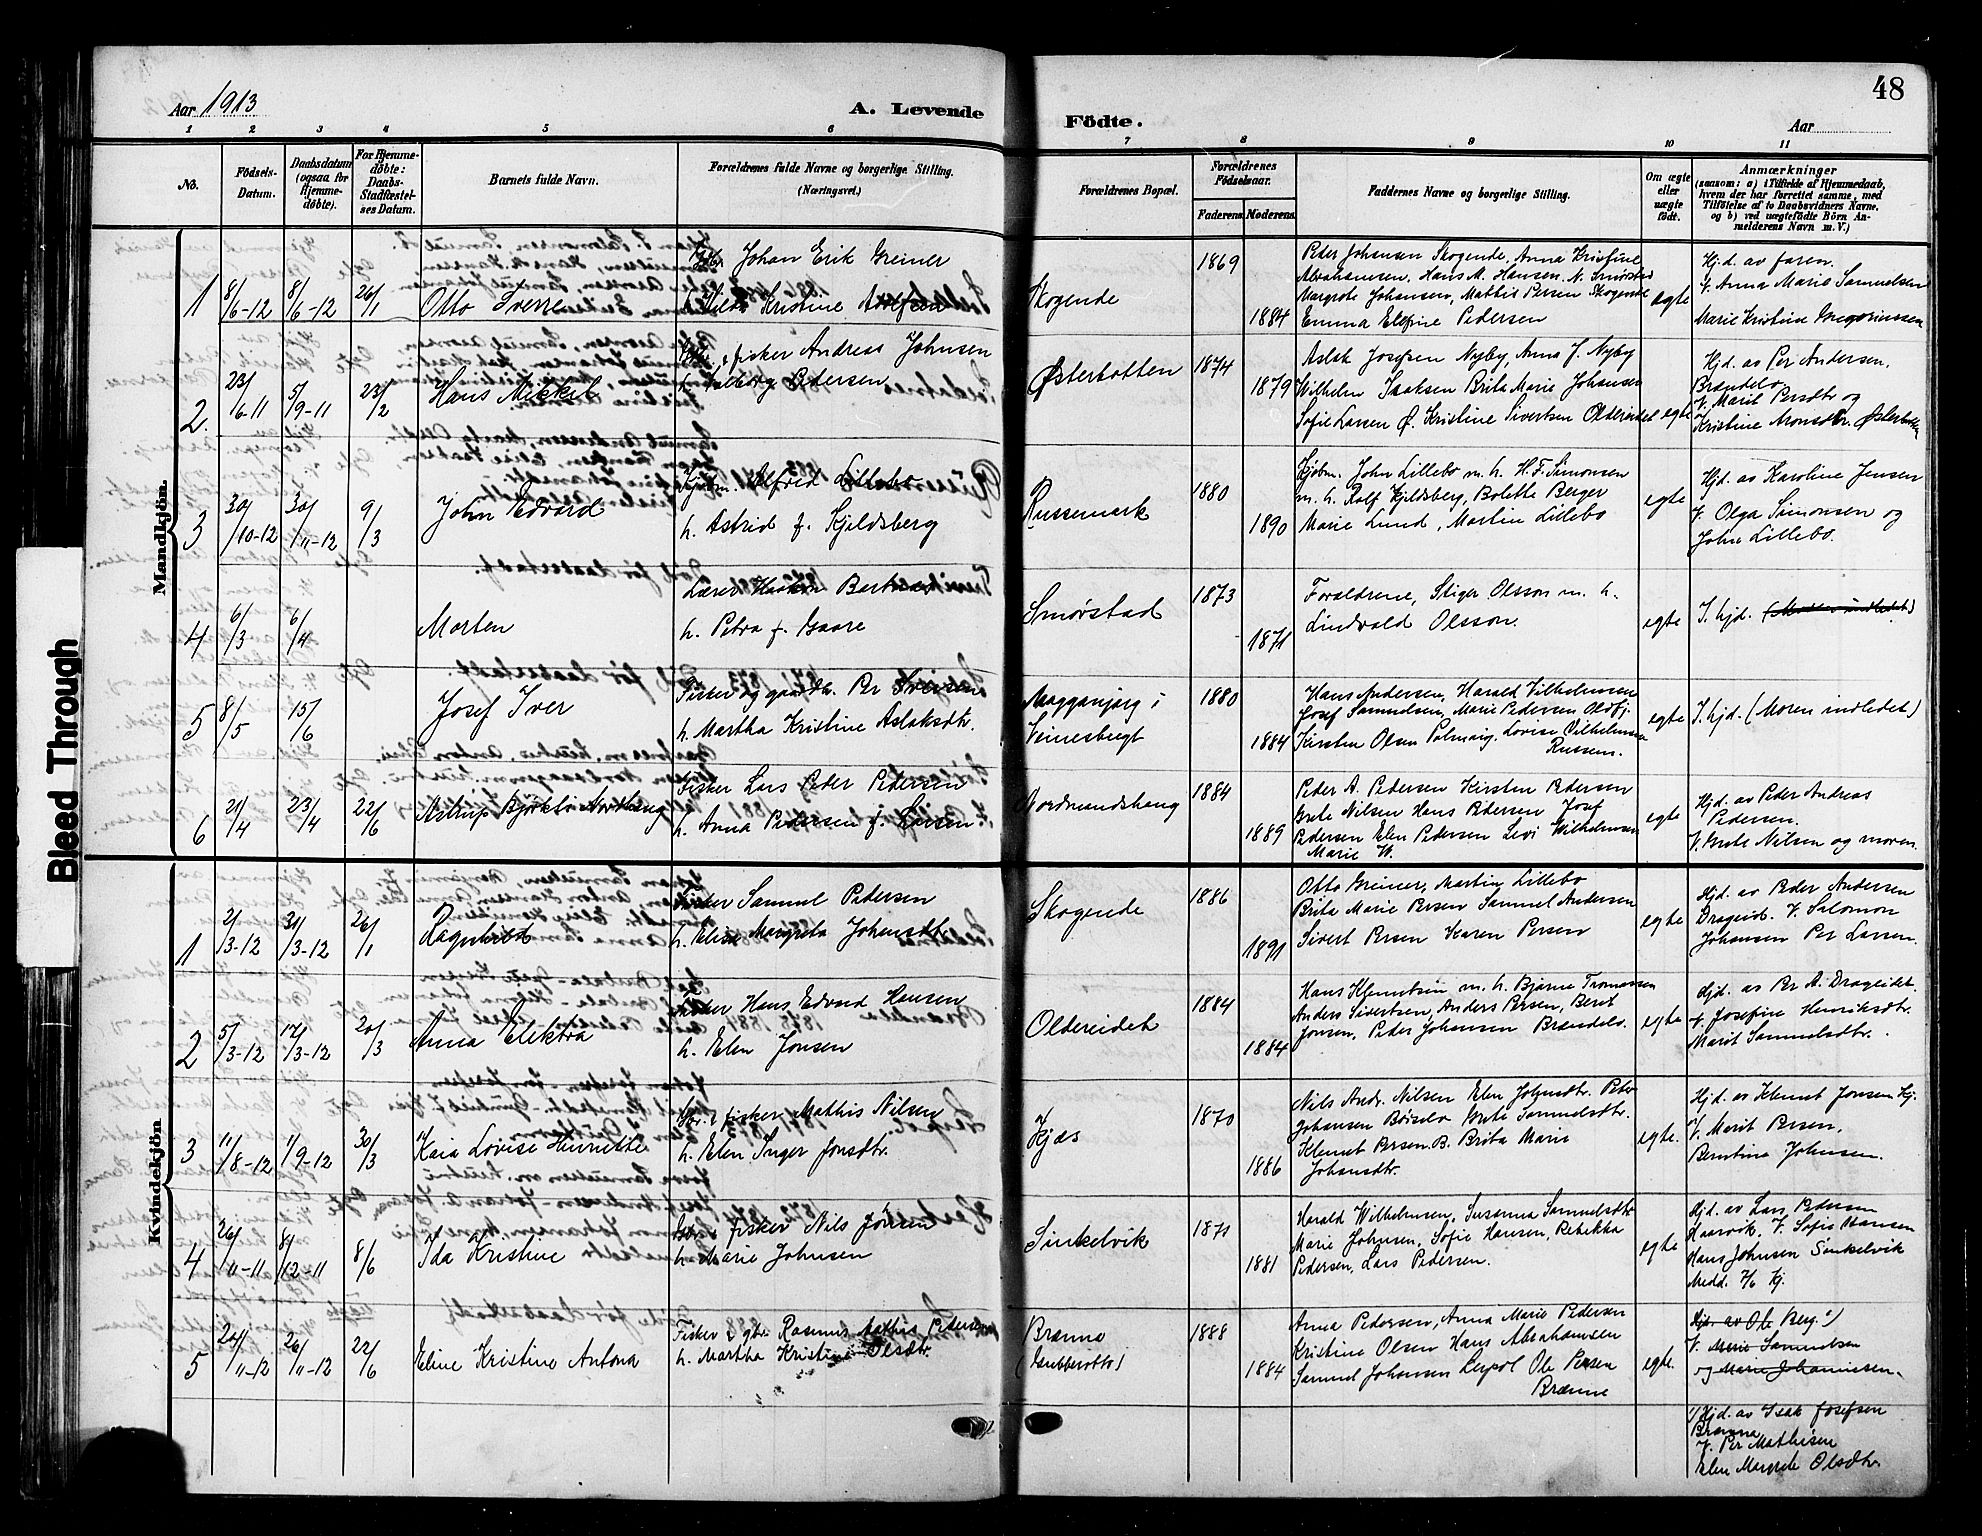 48
Aar 1913
A. Levende
Födte.
Aar
1 2 3 4 5 6 7 8 9 10 11
No.
Födsels-
Datum.
Daabsdatum
(ogsaa for
Hjemme-
döbte).
For Hjemme-
döbte:
Daabs-
Stadfæstel-
ses Datum.
Barnets fulde Navn.
Forældrenes fulde Navne og borgerlige Stilling.
(Næringsvei.)
Forældrenes Bopæl.
Forældrenes
Födselsaar.
Faderens. Moderens.
Faddernes Navne og borgerlige Stilling.
Om ægte
eller
uægte
födt.
Anmærkninger
(saasom: a) i Tilfælde af Hjemmedaab,
hvem der har forrettet samme, med
Tilföielse af to Daabsvidners Navne,
og b) ved uægtefödte Börn An-
melderens Navn m. V.)
Mandkjön.
1
8/6-12
8/6-12
26/1
Otto Sverre
Johan Erik Greiner
h. Hilda Kristine
Skogende
1869
1884
Peder Johansen Skogende, Anna Kristine
Abrahamsen, Hans M. Hansen N. Smørstad
Margrete Johansen, Mathis Persen Skogende
Emma Elefine Pedersen
egte
Hjd. av faren.
V. Anna Marie Samuelsen
Marie Kristine
2.
23/6-11
5/9-11
23/2
Hans Mikkel
fisker Andreas Johnsen
h. Valborg Pedersen
Østerbotten
1874
1879
Aslak Josefsen Nyby, Anna J. Nyby
Wilhelm Isaksen Brita Marie Johansen
Sofie Larsen Ø. Kristine Sivertsen Oldereidet
egte
Hjd. av Per Andersen.
Brændelv
V. Marit Persdtr og
Kristine Aronsdtr. Østerbotten
3
30/10-12
30/11-12
9/3
John Edvard
Kjøbm. Alfred Lillebo
h. Astrid f. Kjeldsberg
Russemark
1880
1890
Kjøbm. John Lillebo m. h. H. F. Simonsen
m. h. Rolf Kjeldsberg, Bolette Berger
Marie Lund, Martin Lillebo
egte
Hjd. av Karoline Jensen
V. Olga Simonsen og
John Lillebo.
4
6/3
6/4
Morten
Lærer Haakon
h. Petra f. Gaare
Smørstad
1873
1871
Forældrene, Stiger Olsson m. h.
Lindvald Olsson.
egte
I. hjd.
5
8/5
15/6
Josef Iver
Fisker og gaardbr. Per Iversen
h. Martha Kristine Aslaksdtr.
Maggenjarg i
Veinesbugt
1880
1884
Hans Andersen, Harald Vilhelmsen
Josef Samuelsen, Marie Pedersen
Kirsten Olsen Polmaig. Lovise Vilhelmsen
Russem.
egte
I. hjd. (Moren indledet)
6
21/4
23/4
22/6
Astrup Bjørklö Nordhaug
Fisker Lars Peder Pedersen
h. Anna Pedersen f. Larsen
Nordmandshaug
1884
1889
Peder A. Pedersen Kirsten Pedersen
Brete Nilsen Hans Pedersen Josef
Pedersen Elen Pedersen Levi Wilhelmsen
Marie W.
egte
Hjd. av Peder Andreas
Pedersen.
V. Brete Nilsen og moren.
Kvindekjön
1
2/3-12
31/3-12
26/1
Ragnhild
Fisker Samuel Pedersen
h. Elise Margreta Johansdtr.
Skogende
1886
1891
Otto Greiner, Martin Lillebo
Brita Marie Persen Samuel Andersen
Sivert Persen Karen Persen
egte
Hjd. av Peder Andersen
Drageid. V. Salomon
Johansen Per Larsen.
2
5/3-12
17/3-12
20/3
Anna Elektra
Fisker Hans Edvard Hansen
h. Elen Jonsen
Oldereidet
1884
1884
Hans Klemetsen m. h. Bjarne Tromassen
Anders Sivertsen, Anders Persen, Beret
Jonsen, Peder Johansen Brændelv.
egte
Hjd. av Per A. Drageidet.
V. Josefine Henriksdtr.
Marit Samuelsdtr.
3
11/8-12
1/9-12
30/3
Kaia Lovise Henriette
fisker Mathis Nilsen
h. Elen Inger Jonsdtr.
Kjæs
1870
1886
Nils Andr. Nilsen Elen Johansdtr. Peder
Johansen Børselv Brete Samuelsdtr.
Klemet Persen B. Brita Marie
Johansdtr.
egte.
Hjd. av Klemet Jonsen Kj.
V. Marit Persen,
Berntine Johnsen.
4
26/11-11
8/12-11
8/6
Ida Kristine
fisker Nils Johnsen
h. Marie Johnsen
Sinkelvik
1871
1881
Harald Wilhelmsen, Susanna Samuelsdtr
Marie Johnsen, Sofie Hansen, Rebekka
Pedersen, Lars Pedersen.
egte
Hjd. av Lars Pedersen
Kaarvik. V. Sofie Hansen
Hans Johnsen Sinkelvik
Medd. 7/6 Kj.
5
20/11-12
26/11-12
22/6
Eline Kristine Antona
Fisker & gbr. Rasmus Mathis Pedersen
h. Martha Kristine Olsdtr.
Brænna
1888
1884
Anna Pedersen, Anna Marie Pedersen
Kristine Olsen Hans Abrahamsen
Samuel Johansen Leipol Ole Persen
Brænne
egte.
Hjd. av Ole Berg. 1)
V. Marie Samuelsen
og Marie Johannesen.
1) Hjd. av Isak Josefsen
Brænna
V. Per Mathisen
Elen Margrete Olsdtr.
Bleed Through